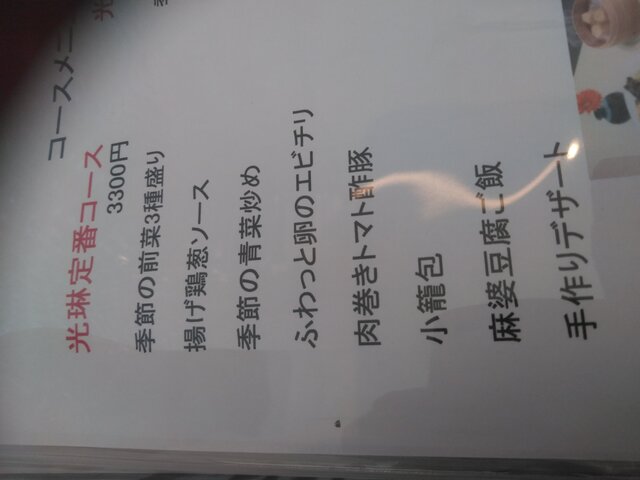 コースメニ
光琳定番コース
3300円
季節の前菜3種盛り
揚げ鶏葱ソース
季節の青菜炒め
ふわっと卵のエビチリ
肉巻きトマト酢豚
小籠包
麻婆豆腐ご飯
手作りデザート